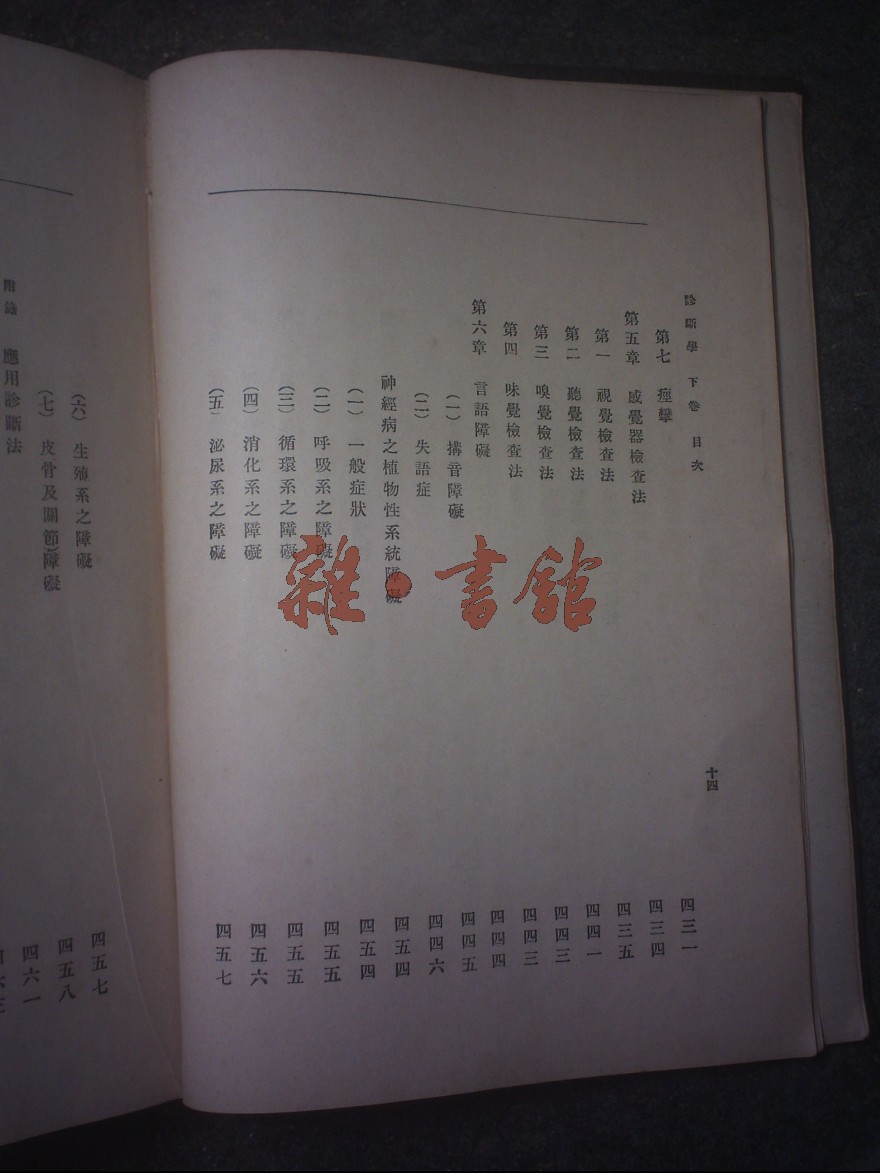 診斷學 下卷 目次
十四
第七 痙攣 四三一
第五章 感覺器檢查法 四三四
第一 視覺檢查法 四三五
第二 聽覺檢查法 四四一
第三 嗅覺檢查法 四四三
第四 味覺檢查法 四四三
第六章 言語障礙 四四四
(一) 搆音障礙 四四五
(二) 失語症 四四六
神經病之植物性系統障礙 四五四
(一) 一般症狀 四五四
(二) 呼吸系之障礙 四五五
(三) 循環系之障礙 四五五
(四) 消化系之障礙 四五六
(五) 泌尿系之障礙 四五七
(六) 生殖系之障礙 四五七
(七) 皮骨及關節障礙 四五八
附錄 應用診斷法 四六一
雜·書館